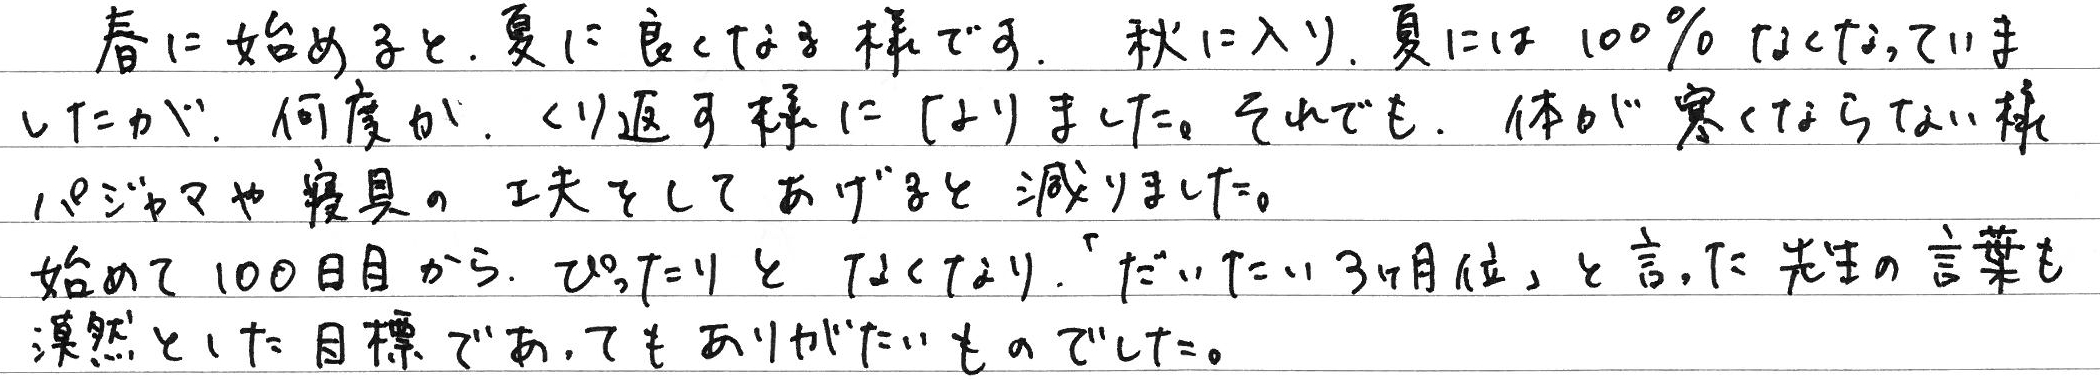 春に始めると、夏に良くなる様です。 秋に入り、夏には100%なくなっていま
したが、何度か、くり返す様になりました。それでも、体が寒くならない様
パジャマや寝具の工夫をしてあげると減りました。
始めて100日目から、ぴったりとなくなり、「だいたい3ヶ月位」と言った先生の言葉も
漠然とした目標であってもありがたいものでした。